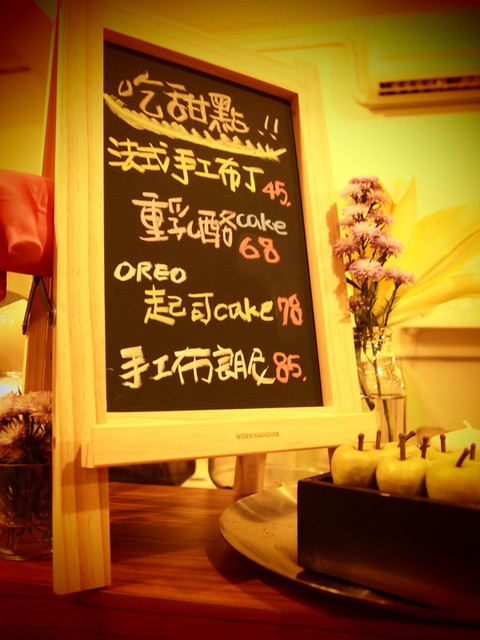 吃甜點!!
法式手工布丁 45.
重乳酪cake
68
OREO
起司cake 78
手工布朗尼 85.
WORKINGHOUSE